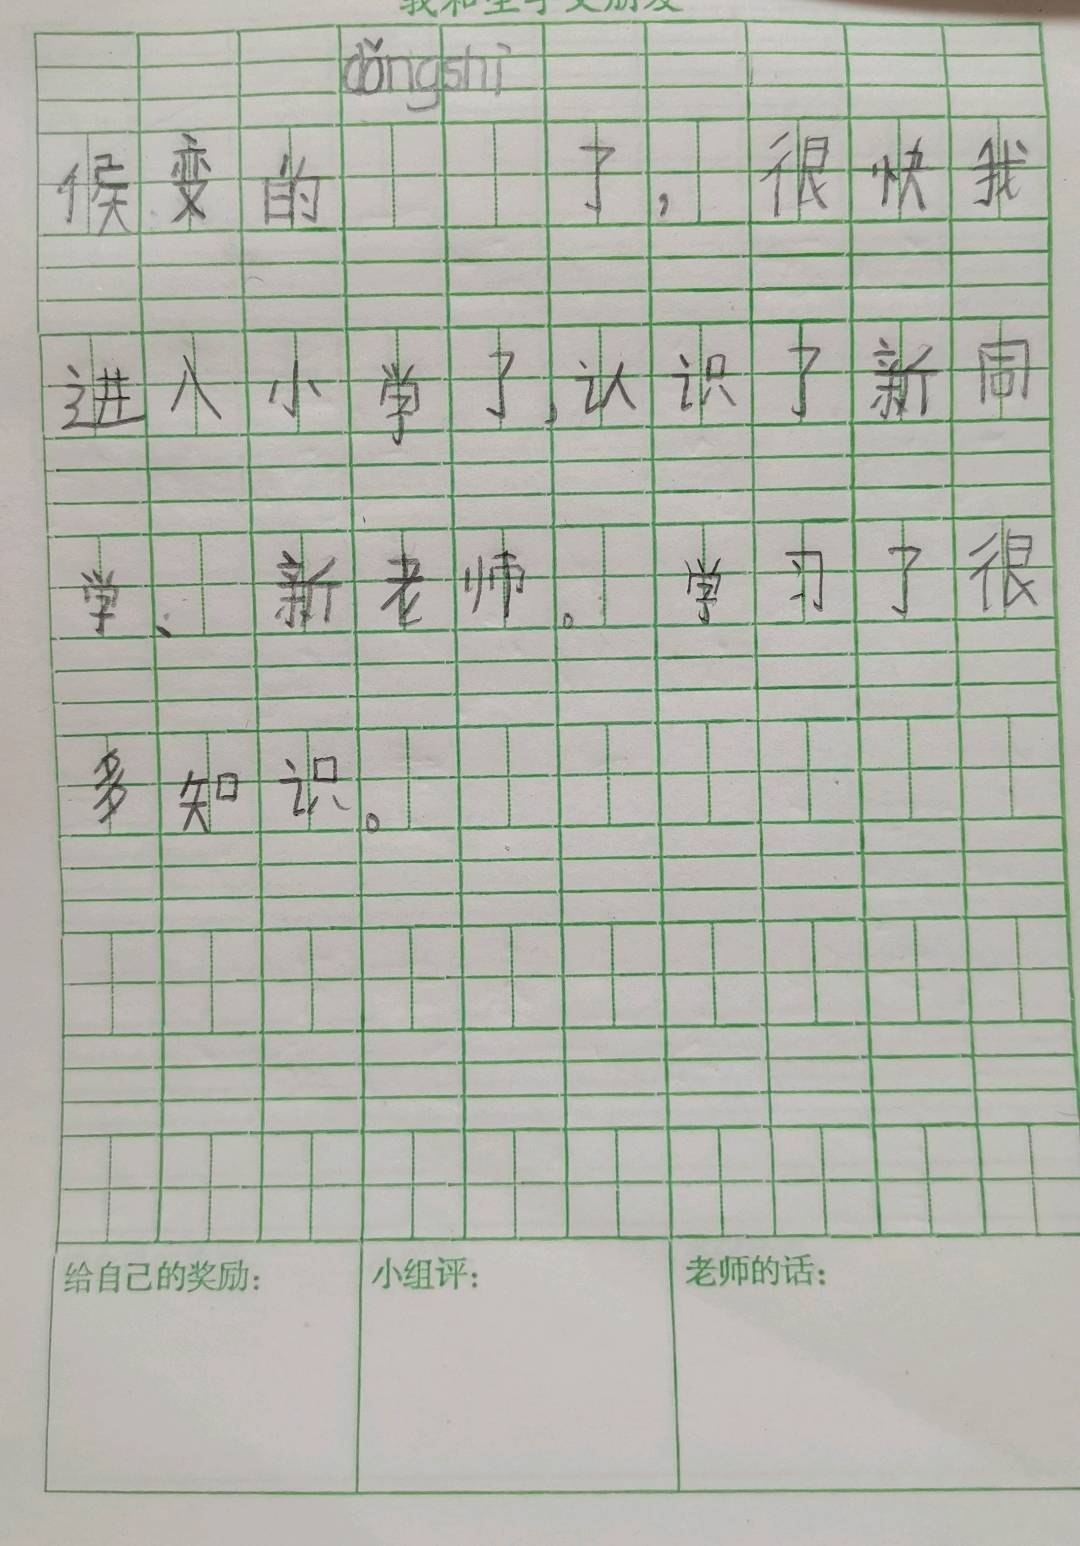 我和生字交朋友
dǒng shì
候变的 了，很快我
进入小学了，认识了新同
学、新老师。学习了很
多知识。
给自己的奖励：
小组评：
老师的话：